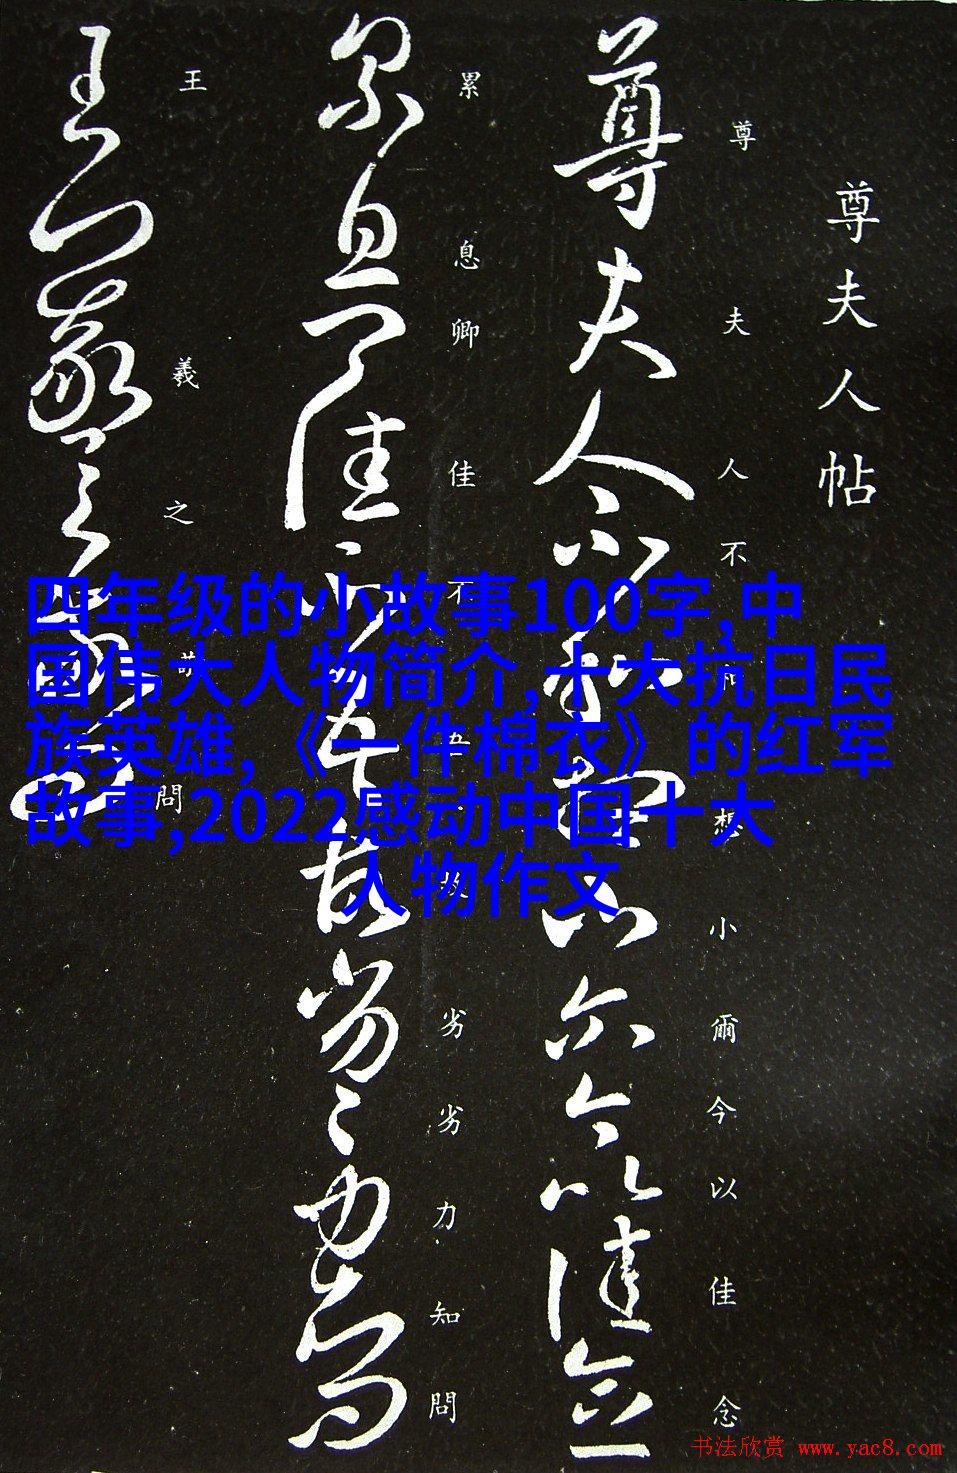 尊夫人帖
尊夫人不和想小爾今以佳念
累息卿佳不吾故劣劣力知問
王羲之敬問
四年级的小故事100字,中
国伟大人物简介,十大抗日民
族英雄,《一件棉衣》的红军
故事,2022感动中国十大
人物作文
书法欣赏 www.yac8.com